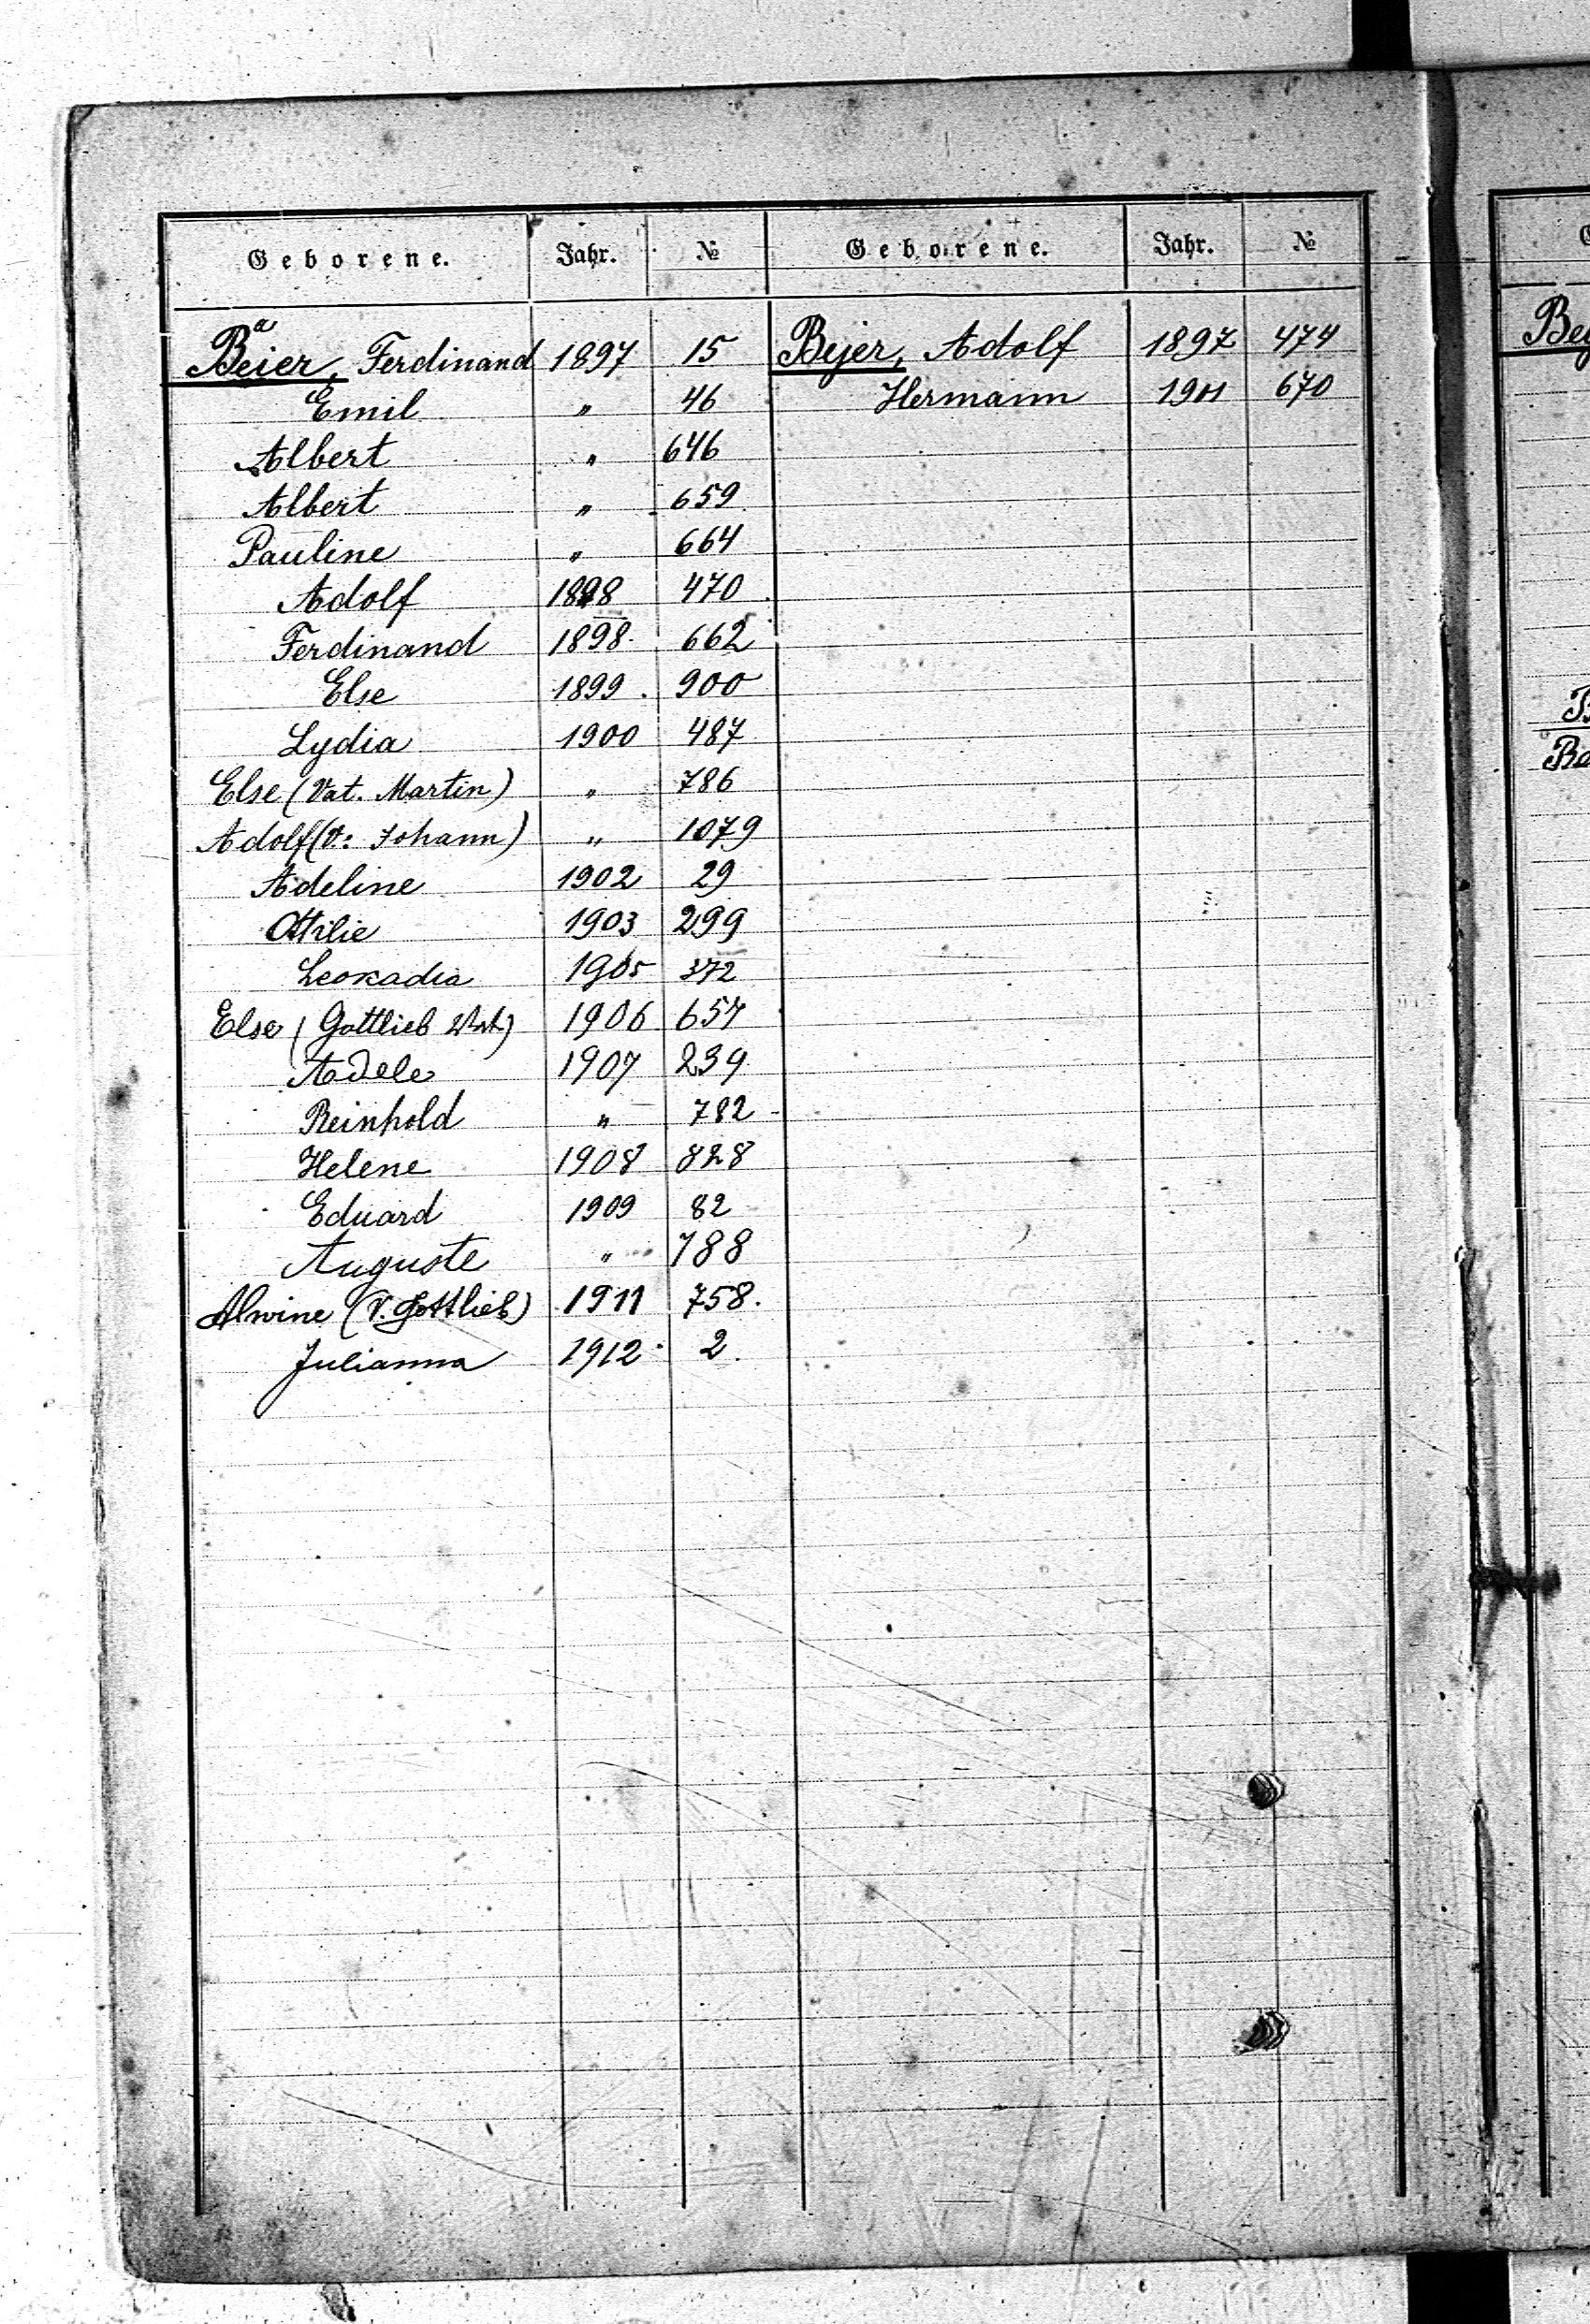 Geborene. Jahr. № Geborene. Jahr. №
Beier, Ferdinand 1897 15 Bejer, Adolf 1897 474
Emil " 46 Hermann 1901 670
Albert " 646
Albert " 659
Pauline " 664
Adolf 1898 470
Ferdinand 1898 662
Else 1899 900
Lydia 1900 487
Else (Vat. Martin) " 786
Adolf (V: Johann) " 1079
Adeline 1902 29
Ottilie 1903 299
Leokadia 1905 372
Else (Gottlieb Vat.) 1906 657
Adele 1907 239
Reinhold " 782
Helene 1908 828
Eduard 1909 82
Auguste " 788
Alwine (V. Gottlieb) 1911 758.
Julianna 1912 2.